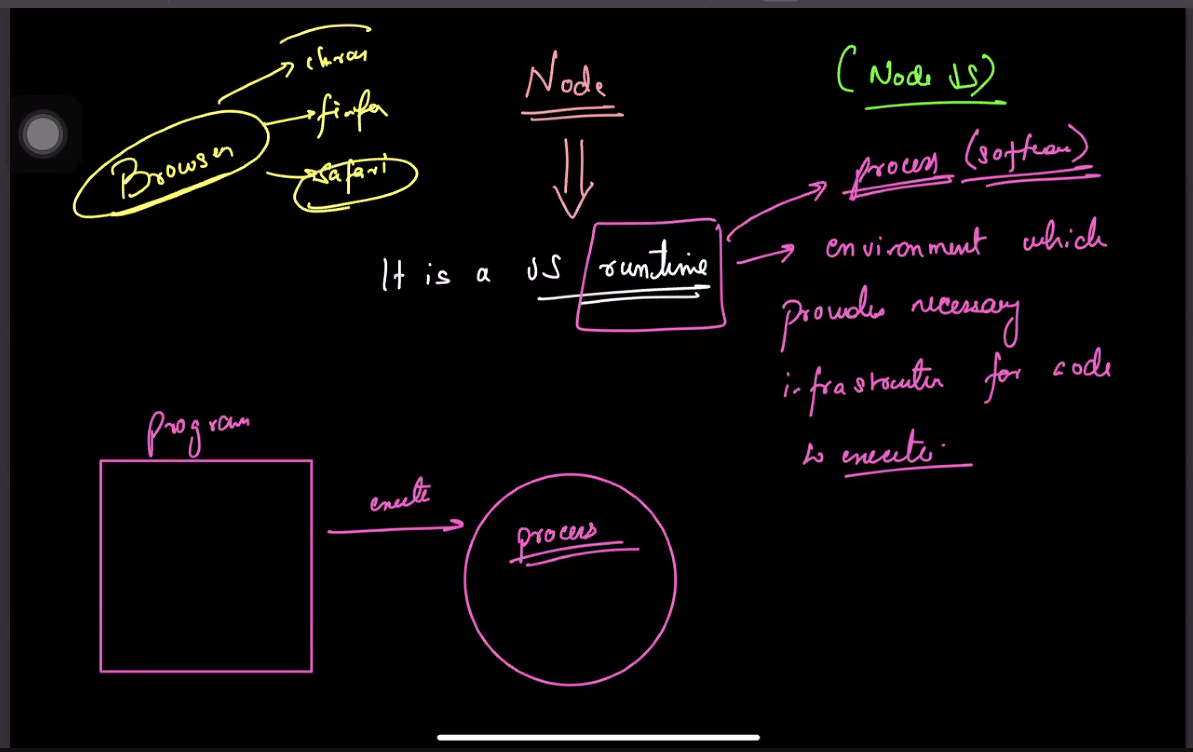 Browser
safari
Node
It is a JS runtime
(Node JS)
process (software)
environment which
provides necessary
infrastructure for code
to execute.
Program
execute
process